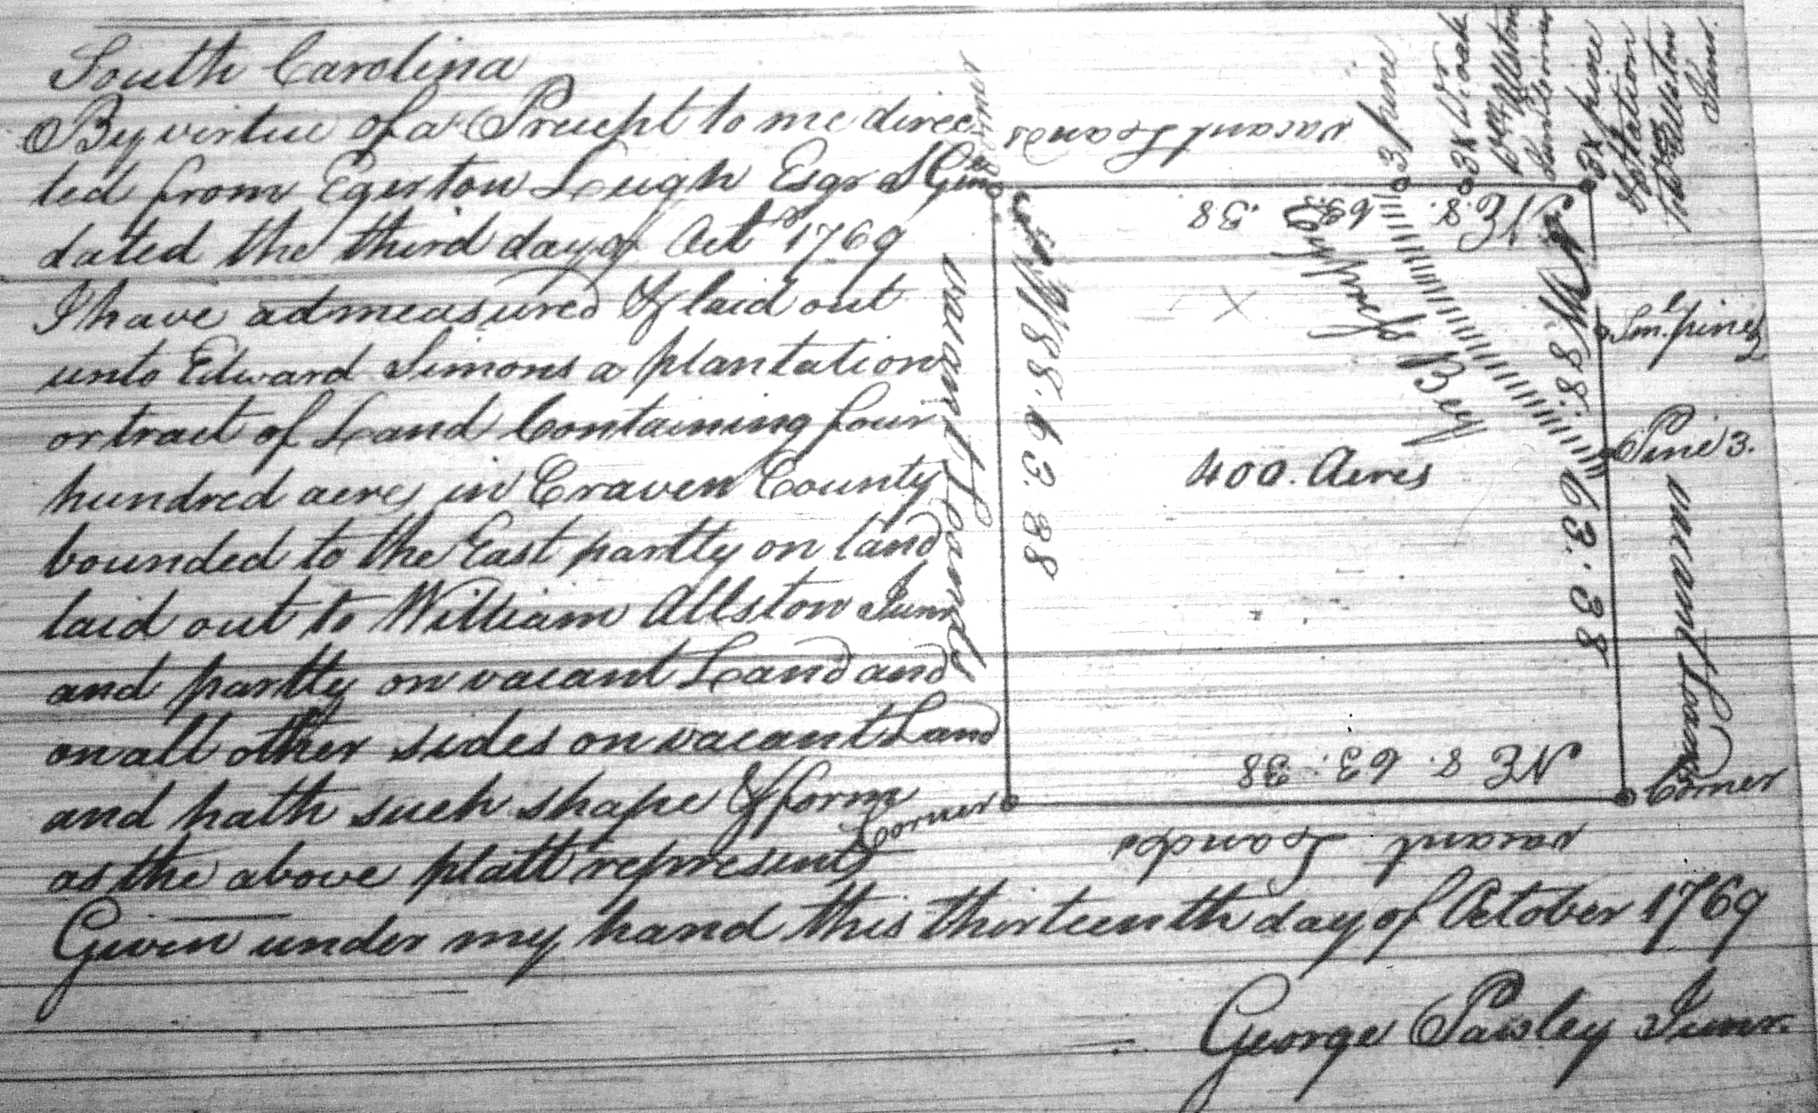 South Carolina
By virtue of a Precept to me direc
ted from Egerton Leigh Esqr S Genl
dated the third day of Oct 1769
I have admeasured & laid out
unto Edward Simons a plantation
or tract of Land Containing four
hundred acres in Craven County
bounded to the East partly on land
laid out to William Allston Junr
and partly on vacant Land and
on all other sides on vacant Land
and hath such shape & form
as the above platt represents
Given under my hand this thirteenth day of October 1769
George Paisley Junr.
vacant Lands
3 pine
3X W. oak
Wm Allston
Junr Corner
3X pine
Station
Wm Allston
Junr.
NE 8. 63. 38
Cypress Bay
NW 88. 63. 38
Sml. pine
Pine 3.
vacant Lands
Corner
400. Acres
NW 88. 63. 38
vacant Lands
NE 8. 63. 38
Corner
vacant Lands